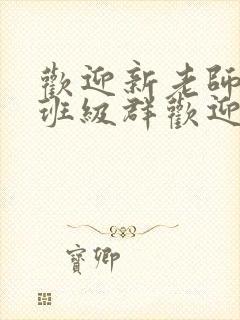 歡迎新老師
班級群歡迎
寶卿